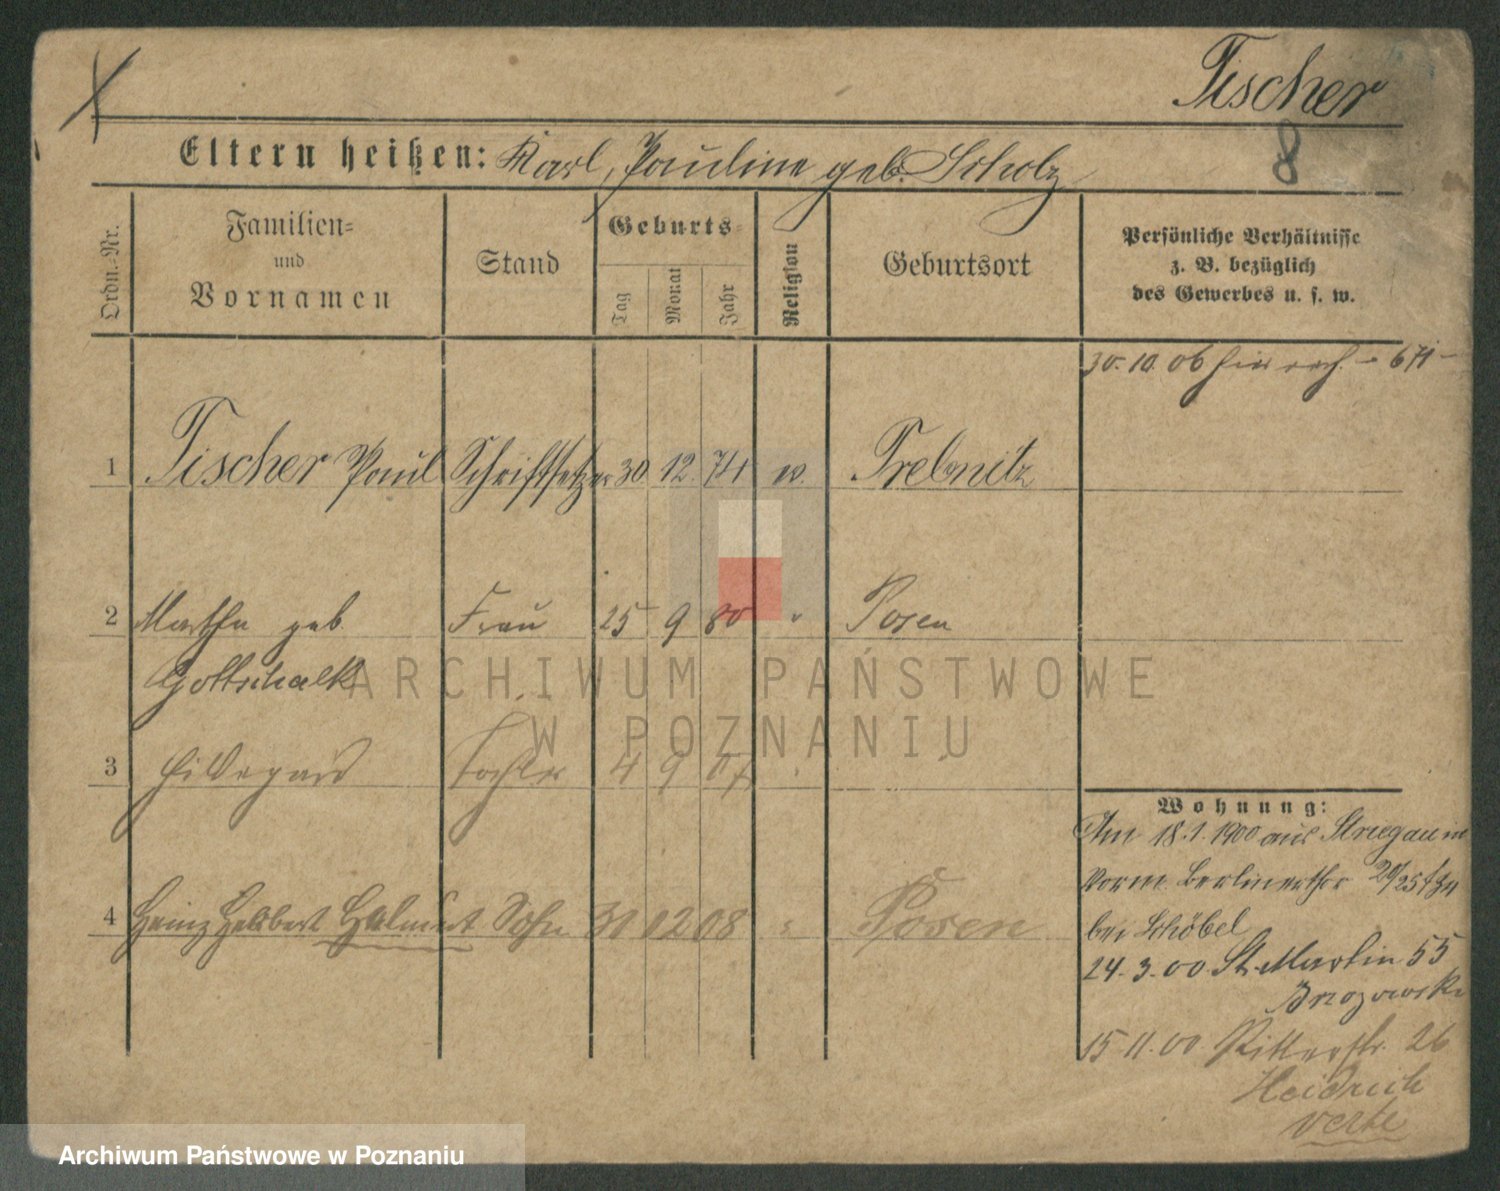 Tischer
8
Eltern heißen: Karl, Pauline geb. Scholz
Ordn.-Nr.
Familien=
und
Vornamen
Stand
Geburts
Tag
Monat
Jahr
Religion
Geburtsort
Persönliche Verhältnisse
z. B. bezüglich
des Gewerbes u. s. w.
30.10.06
1 Tischer Paul Schriftsetzer 30 12. 74 ev. Trebnitz
2 Martha geb. Frau 25 9 80 " Posen
Gottschalk
3 Hildegard Tochter 4 9 07 "
4 Heinz Herbert Helmut Sohn 31 12 08 " Posen
Wohnung:
Am 18.1.1900 aus Striegau in
vorm. Berlinerthor
bei Schöbel
24.3.00. St. Martin 55
Brzozowski
15 11.00 Ritterstr. 26
Heidrich
verte
ARCHIWUM PAŃSTWOWE
W POZNANIU
Archiwum Państwowe w Poznaniu